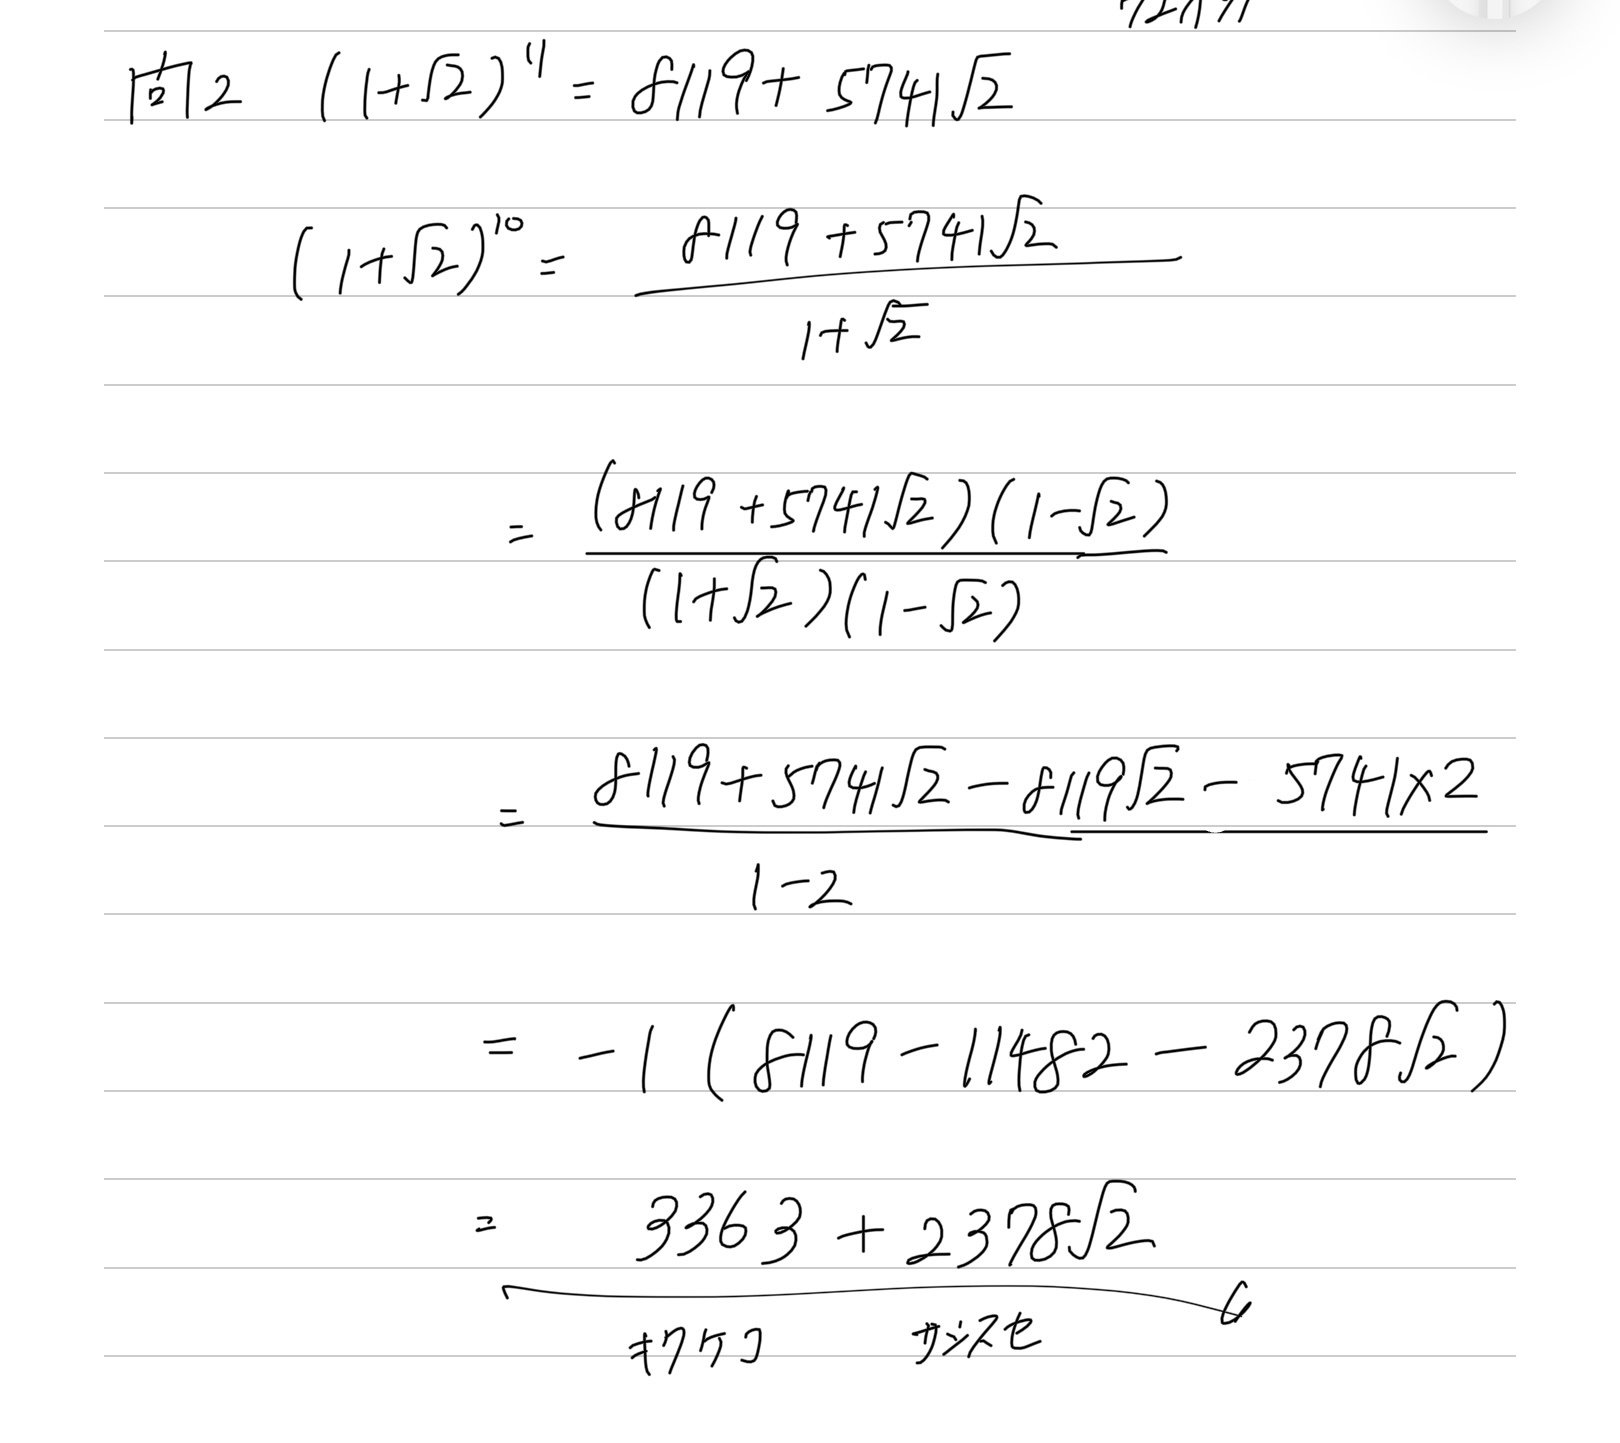 問2 (1+√2)^11 = 8119+5741√2
(1+√2)^10 = (8119+5741√2)/(1+√2)
= (8119+5741√2)(1-√2)/(1+√2)(1-√2)
= (8119+5741√2-8119√2-5741×2)/(1-2)
= -1(8119-11482-2378√2)
= 3363+2378√2
キクケコ サシスセ